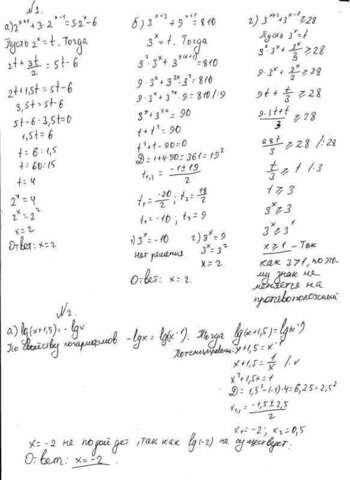 N1.
а) 2^(x+1) + 3·2^(x-1) = 5·2^x - 6
Пусть 2^x = t. Тогда
2t + 3t/2 = 5t - 6
2t + 1,5t = 5t - 6
3,5t = 5t - 6
5t - 6 - 3,5t = 0
1,5t = 6
t = 6 : 1,5
t = 60 : 15
t = 4
2^x = 4
2^x = 2^2
x = 2
Ответ: x = 2
б) 3^(x+2) + 9^(x+1) = 810
3^x = t. Тогда
9·3^x + 3^2x·9 = 810 /:9
3^x + 3^2x = 90
t + t² = 90
t² + t - 90 = 0
D = 1 + 4·90 = 361 = 19²
t1,2 = (-1 ± 19)/2
t1 = -20/2 ; t2 = 18/2
t1 = -10 ; t2 = 9
1) 3^x = -10
нет решения
2) 3^x = 9
3^x = 3^2
x = 2
Ответ: x = 2.
3^(x+2) + 3^(x-1) ≥ 28
Пусть 3^x = t
3²·3^x + 3^x/3 ≥ 28
9·3^x + 3^x/3 ≥ 28
9t + t/3 ≥ 28
28t/3 ≥ 28 /:28
t/3 ≥ 1 /·3
t ≥ 3
3^x ≥ 3
3^x ≥ 3^1
x ≥ 1 - Так
как 3>1, поэто-
му знак не
меняется на
противоположный
N2.
а) lg(x+1,5) = -lgx
По свойству логарифмов -lgx = lg(x^-1). Тогда lg(x+1,5) = lg(x^-1)
x+1,5 = x^-1
x+1,5 = 1/x /·x
x² + 1,5x = 1
D = 1,5² - (-1)·4 = 6,25 = 2,5²
x1,2 = (-1,5 ± 2,5)/2
x1 = -2; x2 = 0,5
x = -2 не подойдет, так как lg(-2) не существует.
Ответ: x = -2.